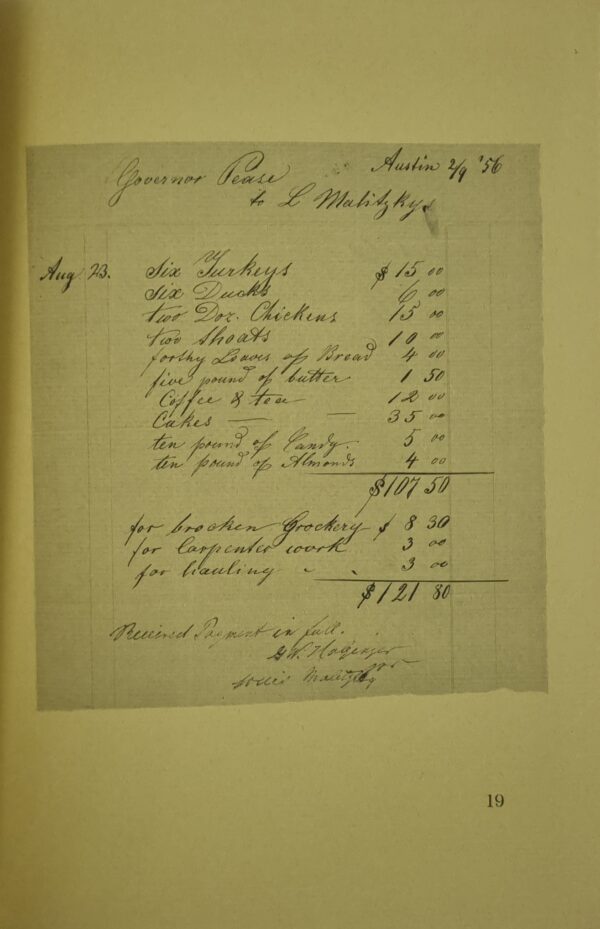 Austin 2/9 '56
Governor Pease
to L Malitzky
Aug 23. Six Turkeys $ 15 00
Six Ducks 6 00
two Doz. Chickens 15 00
two Shoats 10 00
forthy Loaves of Bread 4 00
five pound of butter 1 50
Coffee & tea 12 00
Cakes — — 35 00
ten pound of Candy. 5 00
ten pound of Almonds 4 00
$107 50
for brocken Crockery $ 8 30
for Carpenter work 3 00
for hauling 3 00
$121 80
Received Payment in full.
for
Louis Malitzky
19